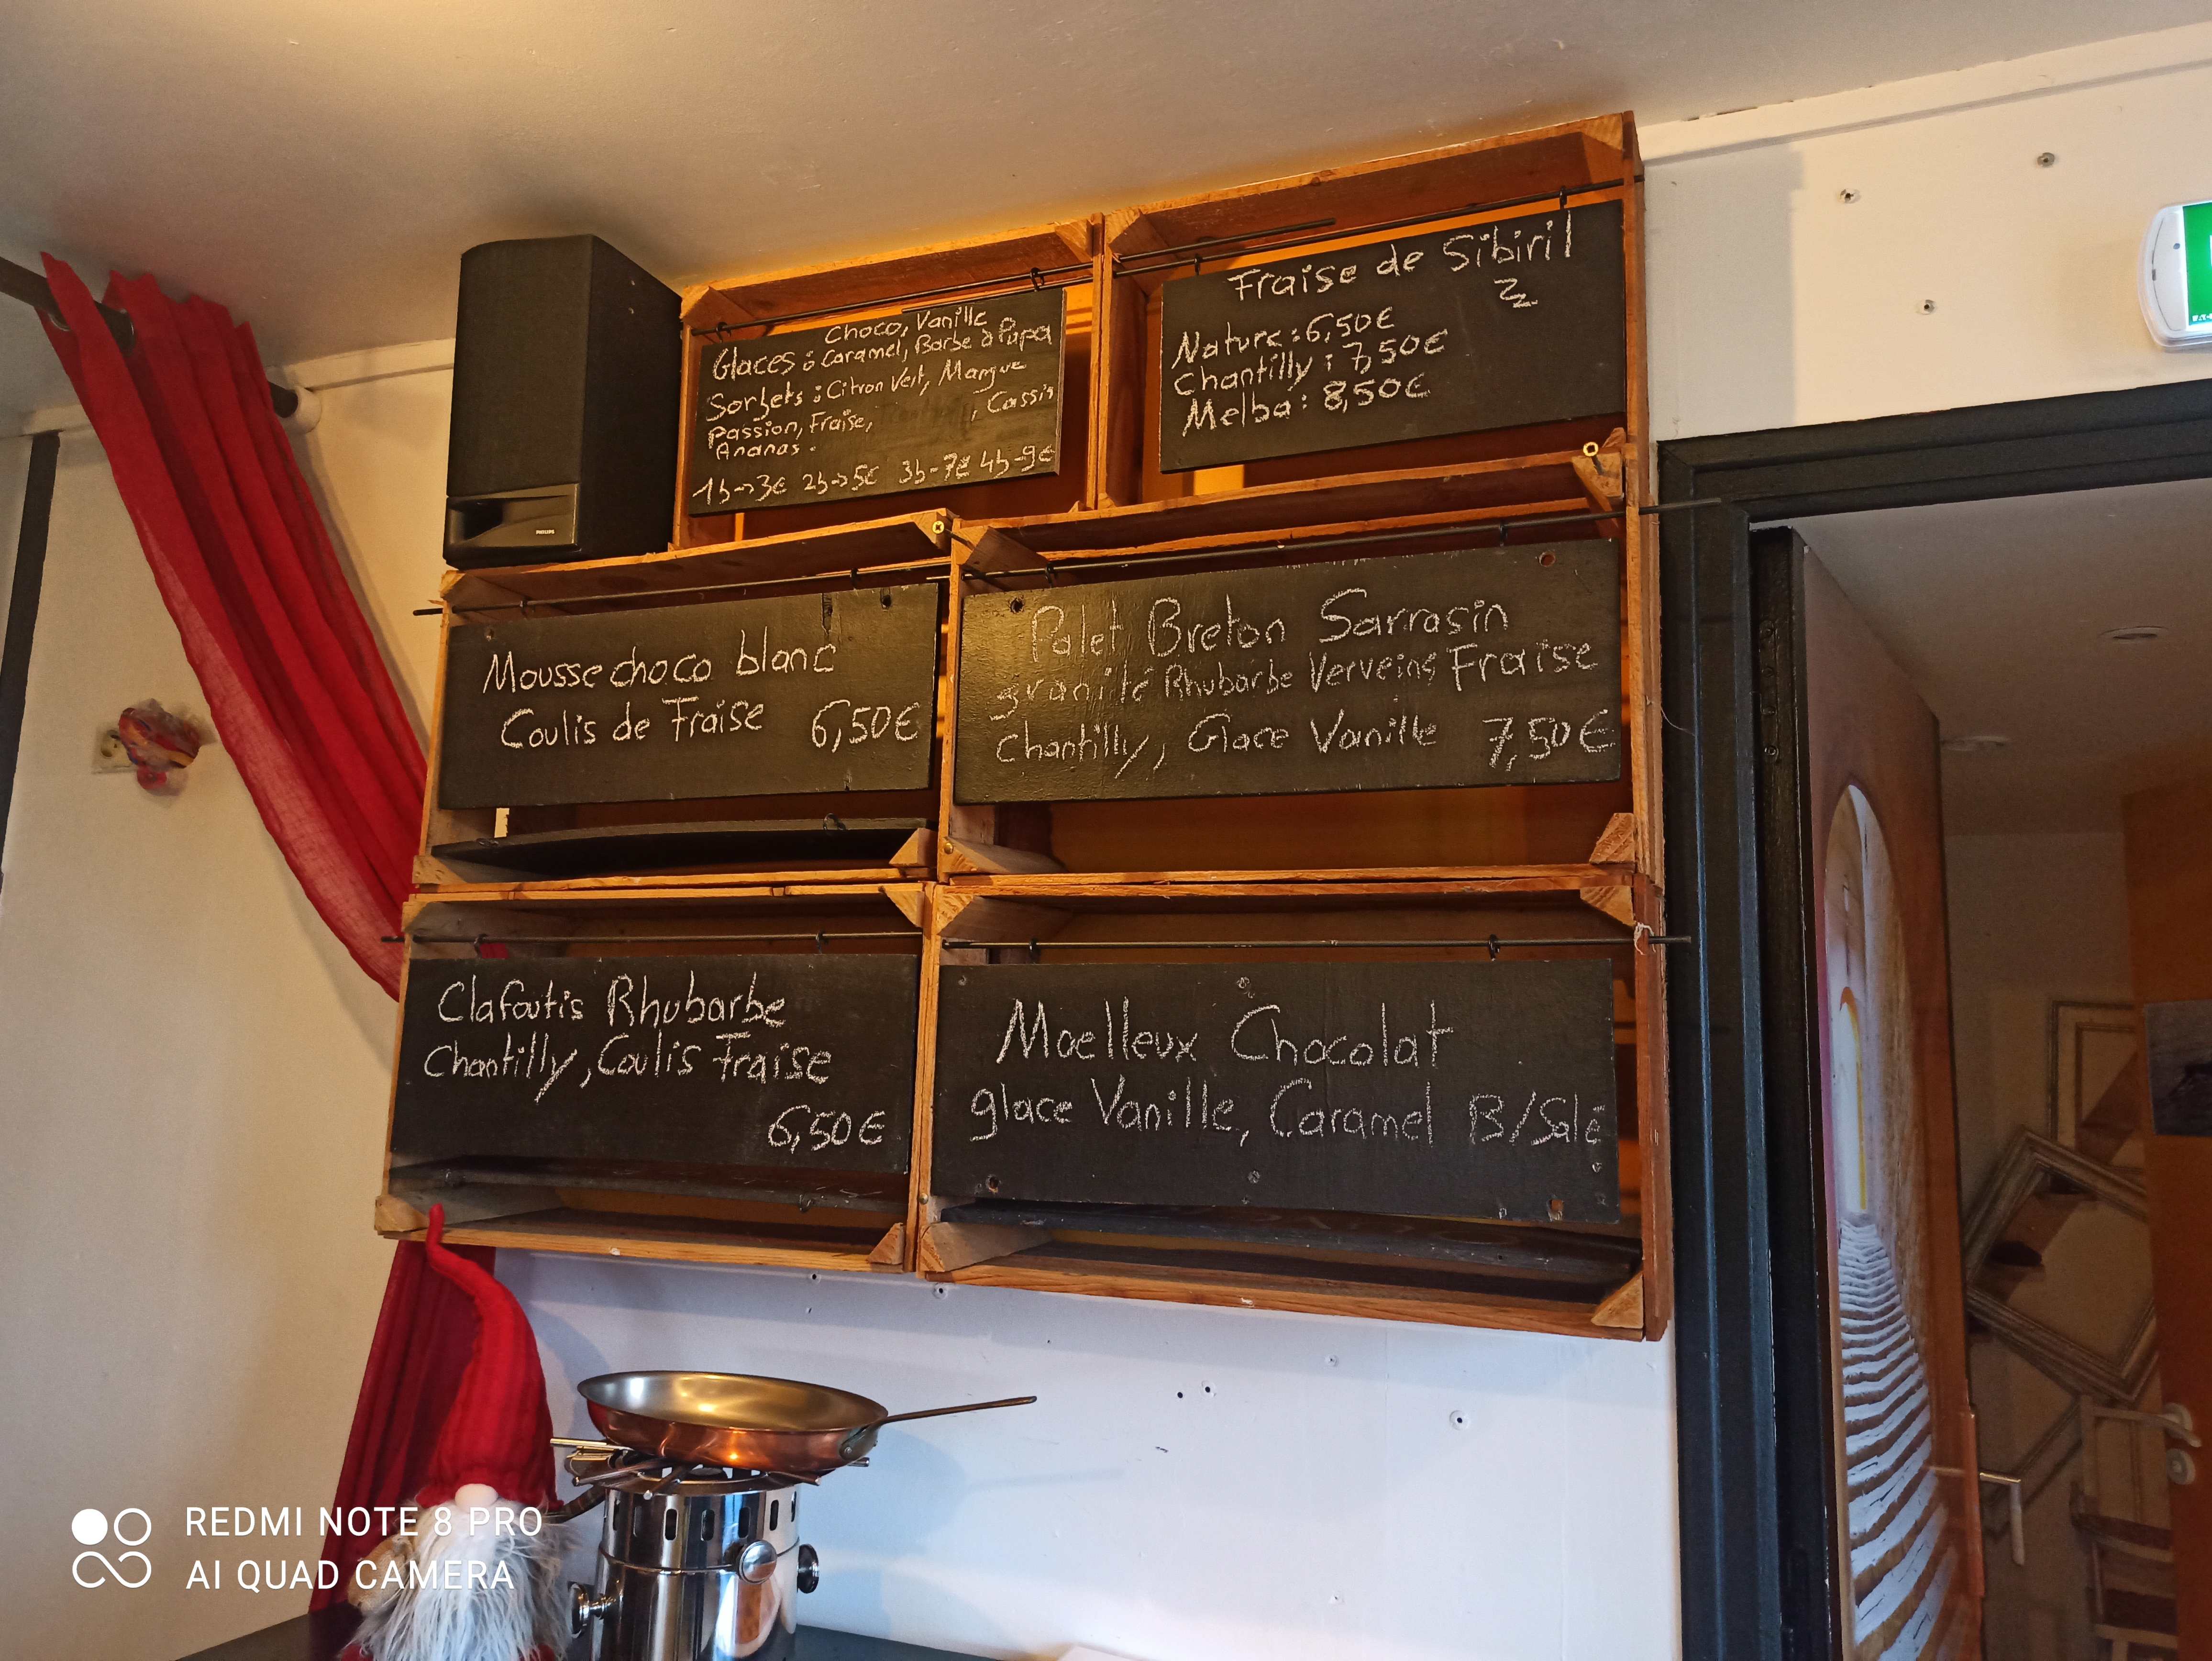 Choco, Vanille
Glaces : Caramel, Barbe à Papa
Sorbets : Citron Vert, Mangue
Passion, Fraise, , Cassis
Ananas.
1b->3€ 2b->5€ 3b-7€ 4b-9€
Fraise de Sibiril
Nature : 6,50€
Chantilly : 7,50€
Melba : 8,50€
PHILIPS
Mousse choco blanc
Coulis de Fraise 6,50€
Palet Breton Sarrasin
granité Rhubarbe Verveine Fraise
Chantilly, Glace Vanille 7,50€
Clafoutis Rhubarbe
Chantilly, Coulis Fraise
6,50€
Moelleux Chocolat
glace Vanille, Caramel B/Salé
REDMI NOTE 8 PRO
AI QUAD CAMERA